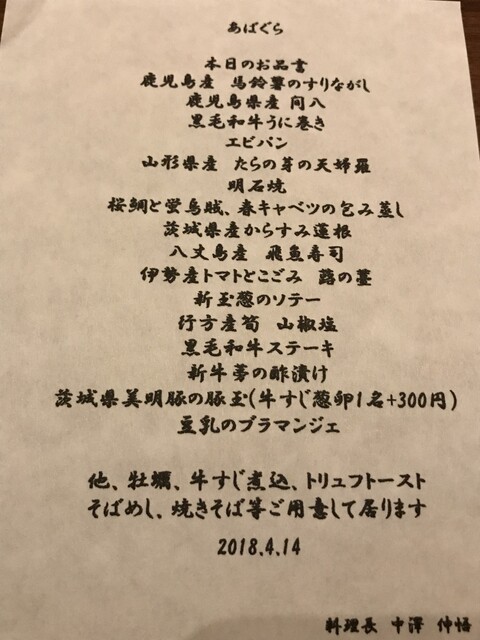 あばぐら
本日のお品書
鹿児島産 馬鈴薯のすりながし
鹿児島県産 間八
黒毛和牛うに巻き
エビパン
山形県産 たらの芽の天婦羅
明石焼
桜鯛と蛍烏賊、春キャベツの包み蒸し
茨城県産からすみ蓮根
八丈島産 飛魚寿司
伊勢産トマトとこごみ 蕗の薹
新玉葱のソテー
行方産筍 山椒塩
黒毛和牛ステーキ
新牛蒡の酢漬け
茨城県美明豚の豚玉(牛すじ葱卵1名+300円)
豆乳のブラマンジェ
他、牡蠣、牛すじ煮込、トリュフトースト
そばめし、焼きそば等ご用意して居ります
2018.4.14
料理長 中澤 仲悟